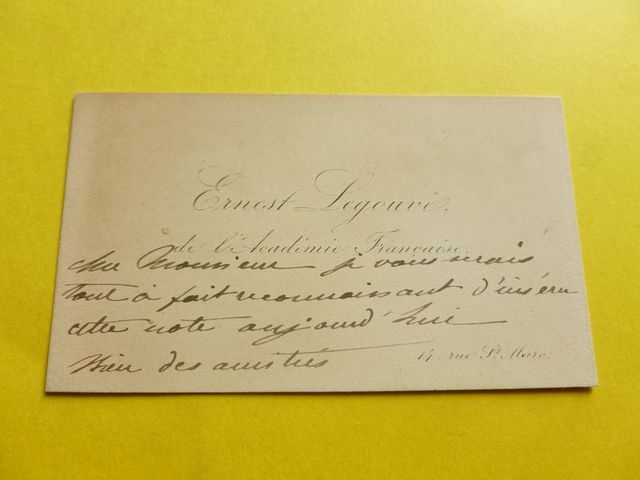 Ernest Legouvé.
de l'Académie Française.
cher Monsieur je vous serais
tout à fait reconnaissant d'insérer
cette note aujourd'hui
Bien des amitiés
14 rue St. Marc.